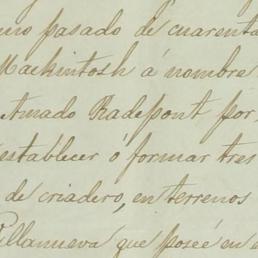 pasado de cuarenta
Mackintosh á nombre
Amado Radepont por
establecer ó formar tres
de criadero, en terrenos
Villanueva que posée en